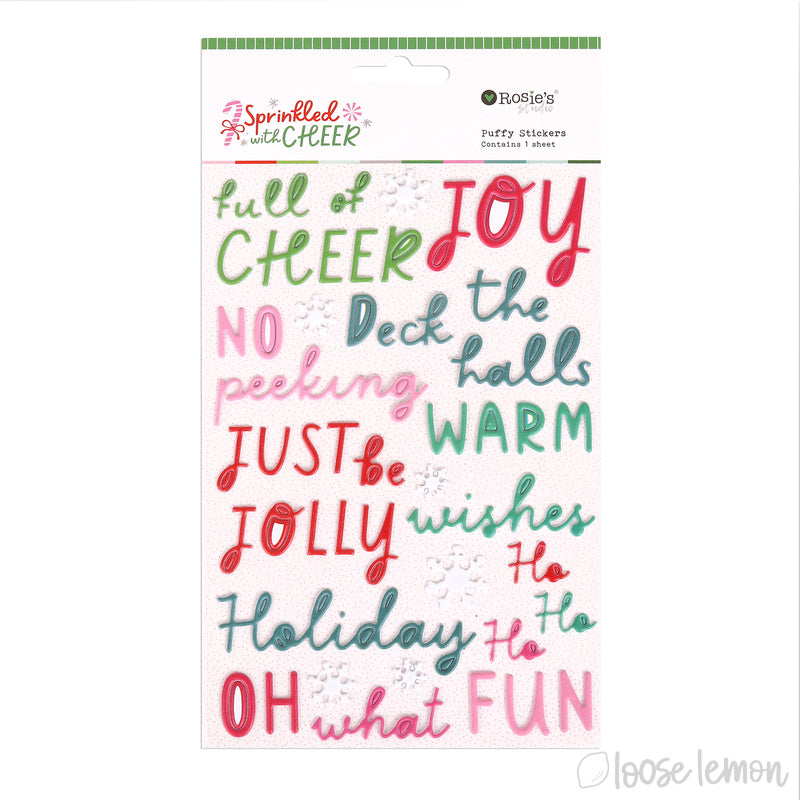 Sprinkled
with CHEER
Rosie's
studio
Puffy Stickers
Contains 1 sheet
full of
CHEER
JOY
NO
peeking
Deck the
halls
WARM
wishes
JUST be
JOLLY
Ho
Ho
Ho
Holiday
OH
what FUN
loose lemon